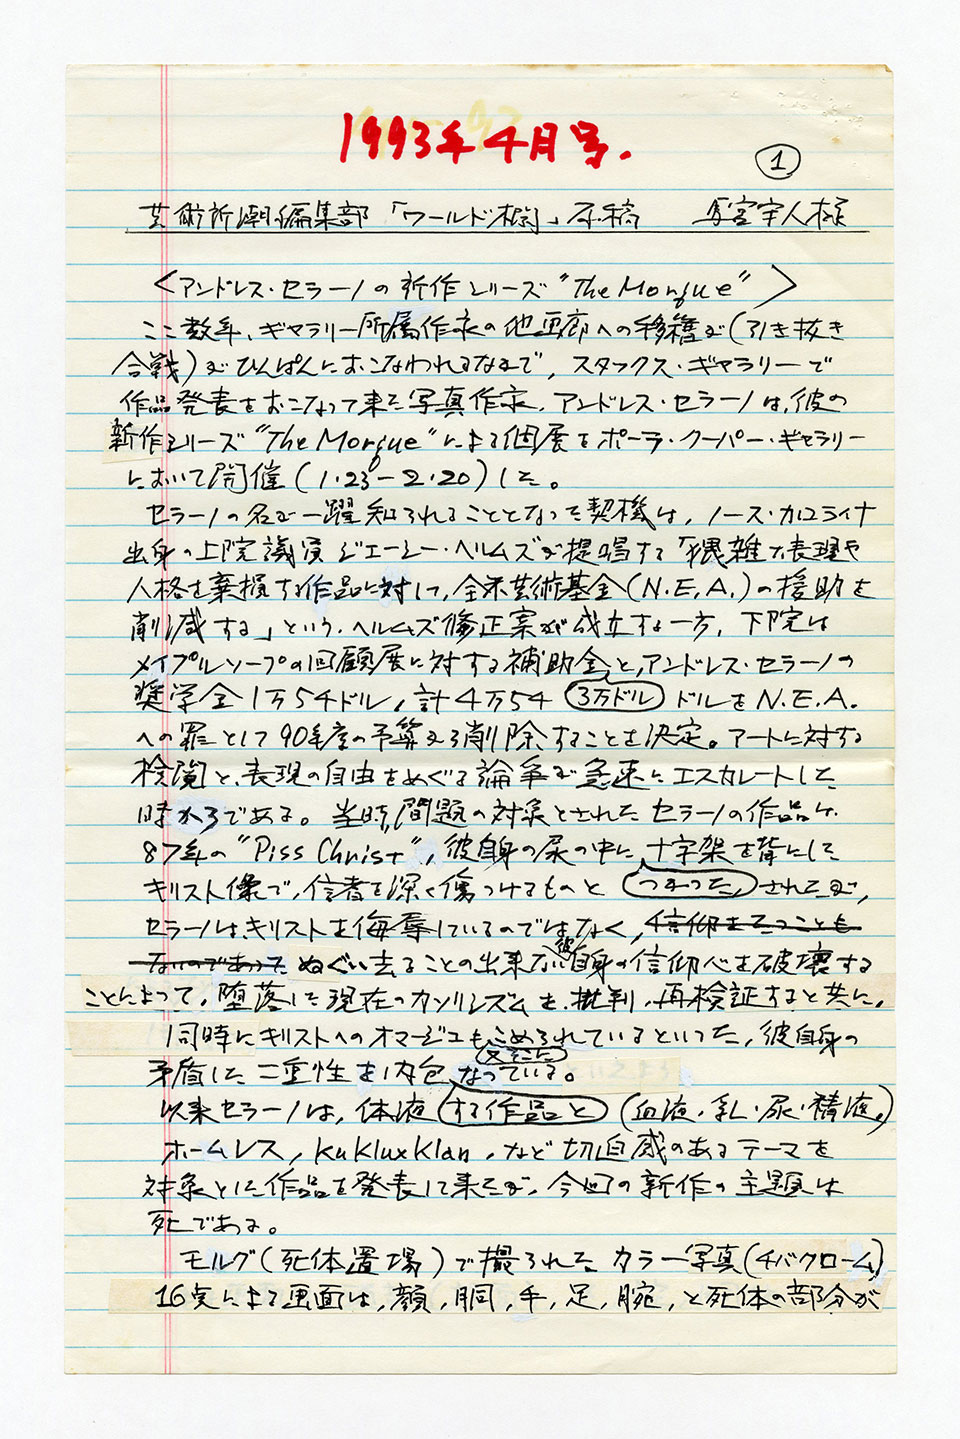 1993年4月号.
①
芸術新潮編集部「ワールド欄」原稿 馬宮宇人様
〈アンドレス・セラーノの新作シリーズ"The Morgue"〉
ここ数年、ギャラリー所属作家の他画廊への移籍が(引き抜き
合戦)がひんぱんにおこなわれるなかで、スタックス・ギャラリーで
作品発表をおこなって来た写真作家、アンドレス・セラーノは、彼の
新作シリーズ"The Morgue"による個展をポーラ・クーパー・ギャラリー
において開催(1・23-2・20)した。
セラーノの名が一躍知られることとなった契機は、ノース・カロライナ
出身の上院議演ジェーシー・ヘルムズが提唱する「猥雑な表現や
人格を棄損する作品に対して、全米芸術基金(N.E.A.)の援助を
削減する」という、ヘルムズ修正案が成立する一方、下院は
メイプルソープの回顧展に対する補助金と、アンドレス・セラーノの
奨学金1万54ドル、計4万54ドルをN.E.A.
3万ドル
への罪として90年度の予算から削除することを決定。アートに対する
検閲と、表現の自由をめぐる論争が急速にエスカレートした
時からである。当時、問題の対象とされたセラーノの作品は、
87年の"Piss Christ"、彼自身の尿の中に十字架を背にした
キリスト像で、信者を深く傷つけるものとされたが、
セラーノはキリストを侮辱しているのではなく、信仰をそっことも
ないのであった ぬぐい去ることの出来ない彼自身の信仰心を破壊する
ことによって、堕落した現在のカソリシズムを批判、再検証すると共に、
同時にキリストへのオマージュもこめられているといった、彼自身の
矛盾した二重性を内包なっている。
以来セラーノは、体液する作品と(血液、乳、尿、精液)
ホームレス、Ku Klux Klan、など切迫感のあるテーマを
対象とした作品を発表して来たが、今回の新作の主題は
死である。
モルグ(死体置場)で撮られたカラー写真(チバクローム)
16点による画面は、顔、胴、手、足、腕、と死体の部分が